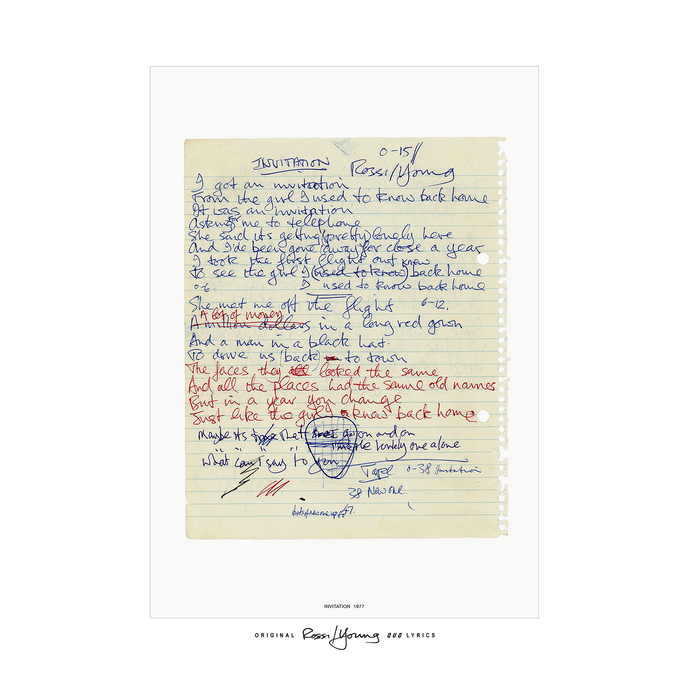 0-15
INVITATION Rossi/Young
I got an invitation
From the girl I used to know back home
It was an invitation
Asking for me to telephone
She said its getting (pretty) lonely here
And I'de been gone (away) for close a year
I took the first flight out knew
To see the girl I (used to know) back home
0-6 I used to know back home
She met me off the flight 6-12.
A lot of money
A million dollars in a long red gown
And a man in a black hat
To drive us (back) to town
The faces they all looked the same
And all the places had the same old names
But in a year you change
Just like the girl I knew back home
maybe its that go on and on
the lonely one alone
What "can I say" to you
Tape 0-38 Invitation
38 New one.
INVITATION 1977
ORIGINAL Rossi/Young QUO LYRICS